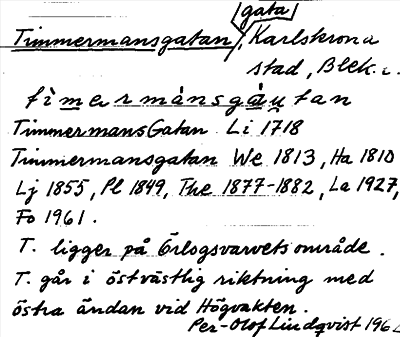 gata
Timmermansgatan, Karlskrona
stad, Blek. L.
tìmermánsgàụtan
TimmermansGatan Li 1718
Timmermansgatan We 1813, Ha 1810
Lj 1855, Pl 1849, The 1877-1882, La 1927,
Fo 1961.
T. ligger på Örlogsvarvets område.
T. går i östvästlig riktning med
östra ändan vid Högvakten.
Per-Olof Lindqvist 196